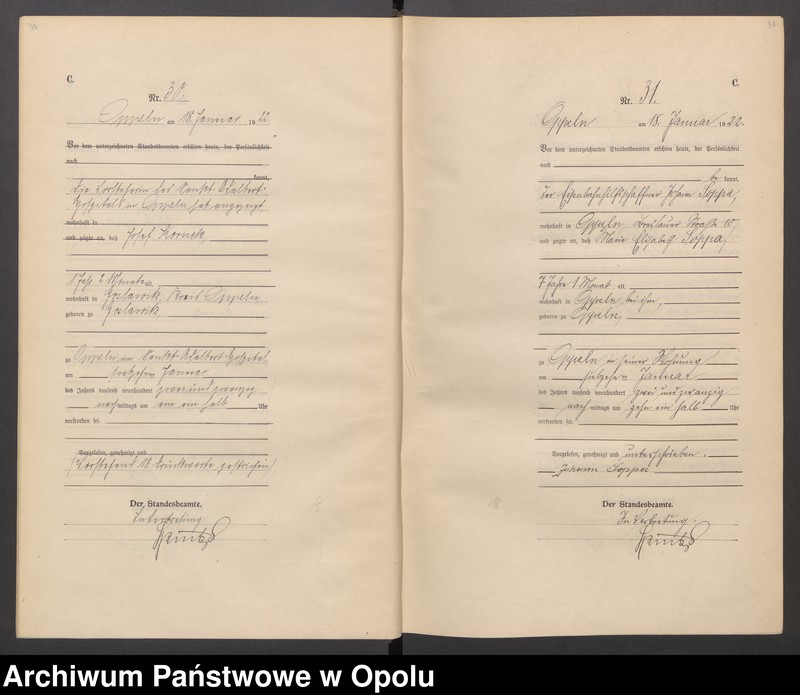 30
C.
Nr. 30.
Oppeln am 18. Januar 1922
Vor dem unterzeichneten Standesbeamten erschien heute, der Persönlichkeit
nach
kannt,
Die Vorsteherin des Sankt Adalbert-
Hospitals in Oppeln hat angezeigt,
wohnhaft in
und zeigte an, daß Josef
8 Jahre 2 Monate alt,
wohnhaft in Kreis Oppeln
geboren zu
zu Oppeln im Sankt Adalbert-Hospital
am siebzehn Januar
des Jahres tausend neunhundert zweiundzwanzig
nachmittags um ein ein halb Uhr
verstorben sei.
Vorgelesen, genehmigt und
(Vorstehend 18 Druckworte gestrichen)
Der Standesbeamte.
In Vertretung
31
C.
Nr. 31.
Oppeln am 18. Januar 1922.
Vor dem unterzeichneten Standesbeamten erschien heute, der Persönlichkeit
nach
be kannt,
der Eisenbahnhilfsschaffner Johann Soppa,
wohnhaft in Oppeln, Breslauer Straße 10,
und zeigte an, daß Marie Elisabeth Soppa,
7 Jahre 1 Monat alt,
wohnhaft in Oppeln bei ihm,
geboren zu Oppeln,
zu Oppeln in seiner Wohnung
am siebzehn Januar
des Jahres tausend neunhundert zwei und zwanzig
nachmittags um zehn ein halb Uhr
verstorben sei.
Vorgelesen, genehmigt und unterschrieben.
Johann Soppa
Der Standesbeamte.
In Vertretung.
Archiwum Państwowe w Opolu